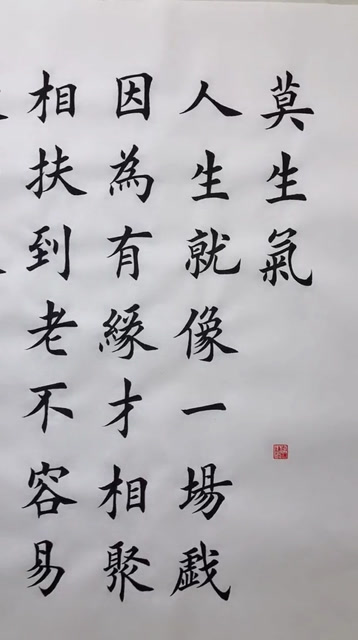 莫生氣
人生就像一場戲
因為有緣才相聚
相扶到老不容易